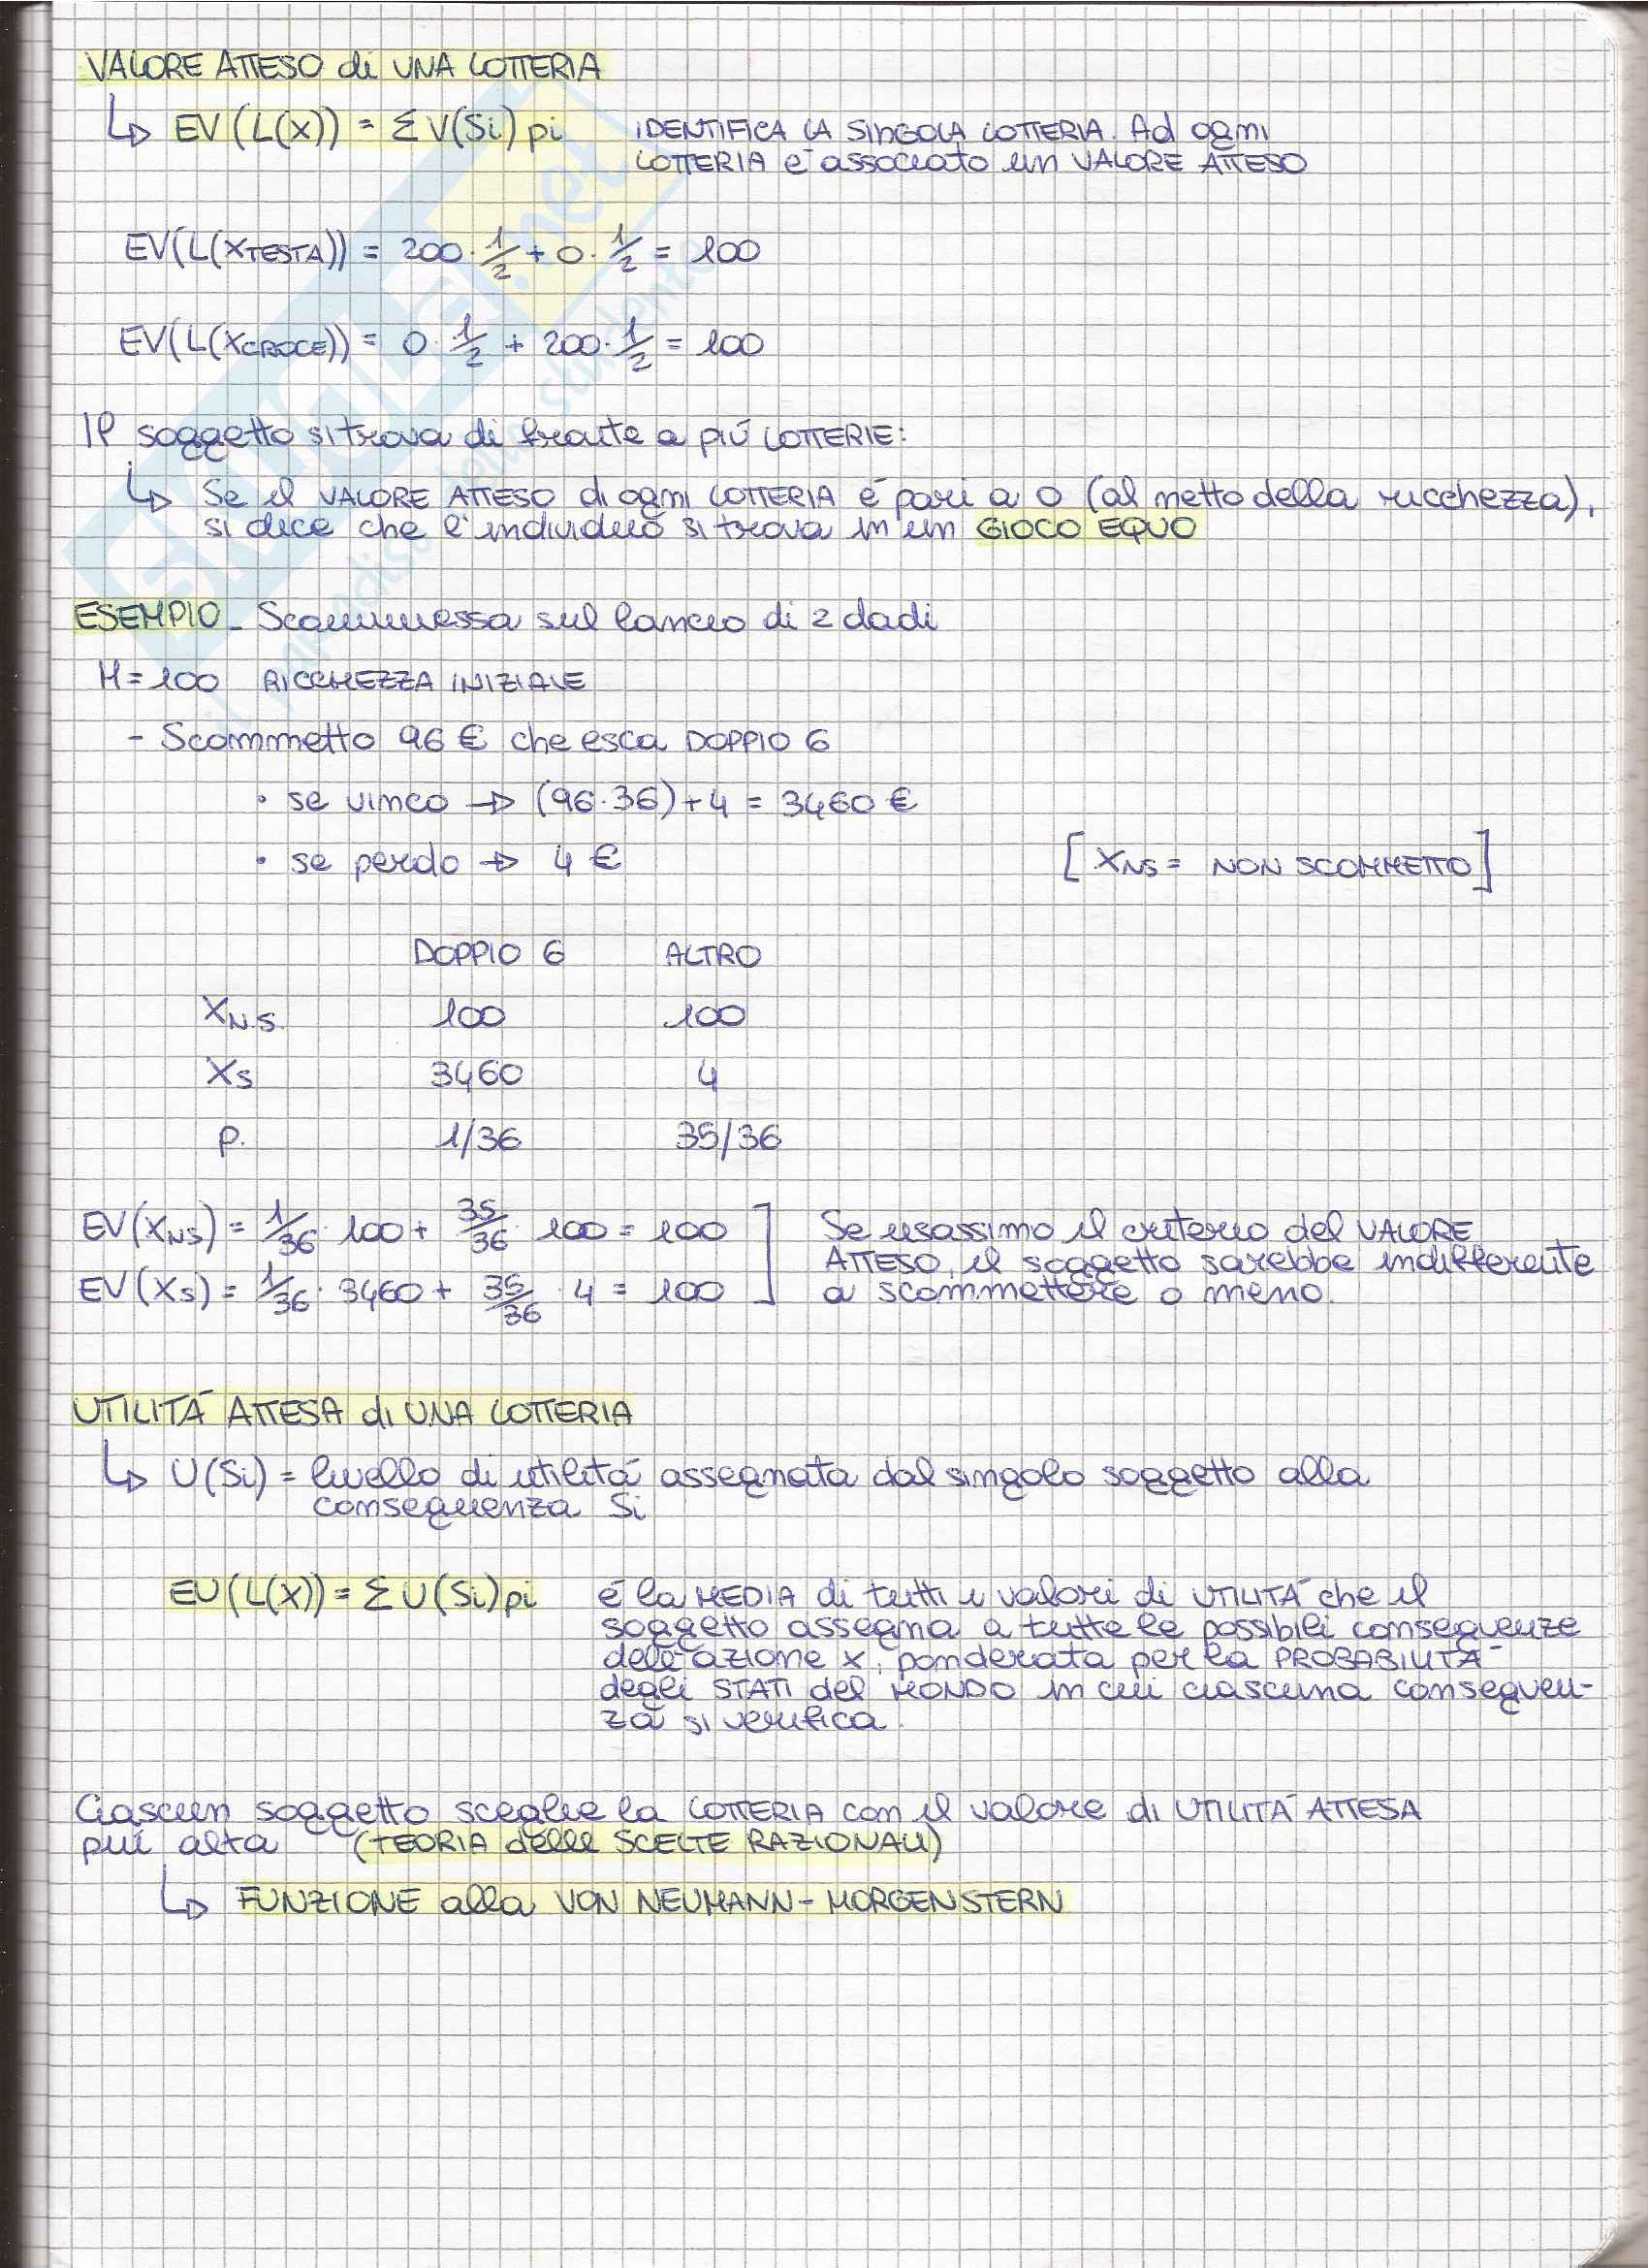 VALORE ATTESO di UNA LOTTERIA
↳ EV (L(x)) = Σ V(Si) pi IDENTIFICA LA SINGOLA LOTTERIA. Ad ogni
LOTTERIA é associato un VALORE ATTESO
EV(L(XTESTA)) = 200 · 1/2 + 0 · 1/2 = 100
EV(L(XCROCE)) = 0 · 1/2 + 200 · 1/2 = 100
Il soggetto si trova di fronte a più LOTTERIE:
↳ Se il VALORE ATTESO di ogni LOTTERIA é pari a 0 (al netto della ricchezza),
si dice che l'individuo si trova in un GIOCO EQUO
ESEMPIO_ Scommessa sul lancio di 2 dadi
M = 100 RICCHEZZA INIZIALE
- Scommetto 96 € che esca DOPPIO 6
• se vinco → (96·36)+4 = 3460 €
• se perdo → 4 € [XNS = NON SCOMMETTO]
DOPPIO 6 ALTRO
XN.S. 100 100
XS 3460 4
p. 1/36 35/36
EV(XNS) = 1/36 · 100 + 35/36 · 100 = 100 ] Se usassimo il criterio del VALORE
ATTESO, il soggetto sarebbe indifferente
EV(XS) = 1/36 · 3460 + 35/36 · 4 = 100 a scommettere o meno.
UTILITÁ ATTESA di UNA LOTTERIA
↳ U(Si) = livello di utilitá assegnata dal singolo soggetto alla
conseguenza Si
EU(L(X)) = Σ U(Si) pi é la MEDIA di tutti i valori di UTILITÁ che il
soggetto assegna a tutte le possibili conseguenze
dell'azione x, ponderata per la PROBABILITÁ
degli STATI del MONDO in cui ciascuna conseguen-
za si verifica.
Ciascun soggetto sceglie la LOTTERIA con il valore di UTILITÁ ATTESA
piú alta (TEORIA delle SCELTE RAZIONALI)
↳ FUNZIONE alla VON NEUMANN - MORGENSTERN